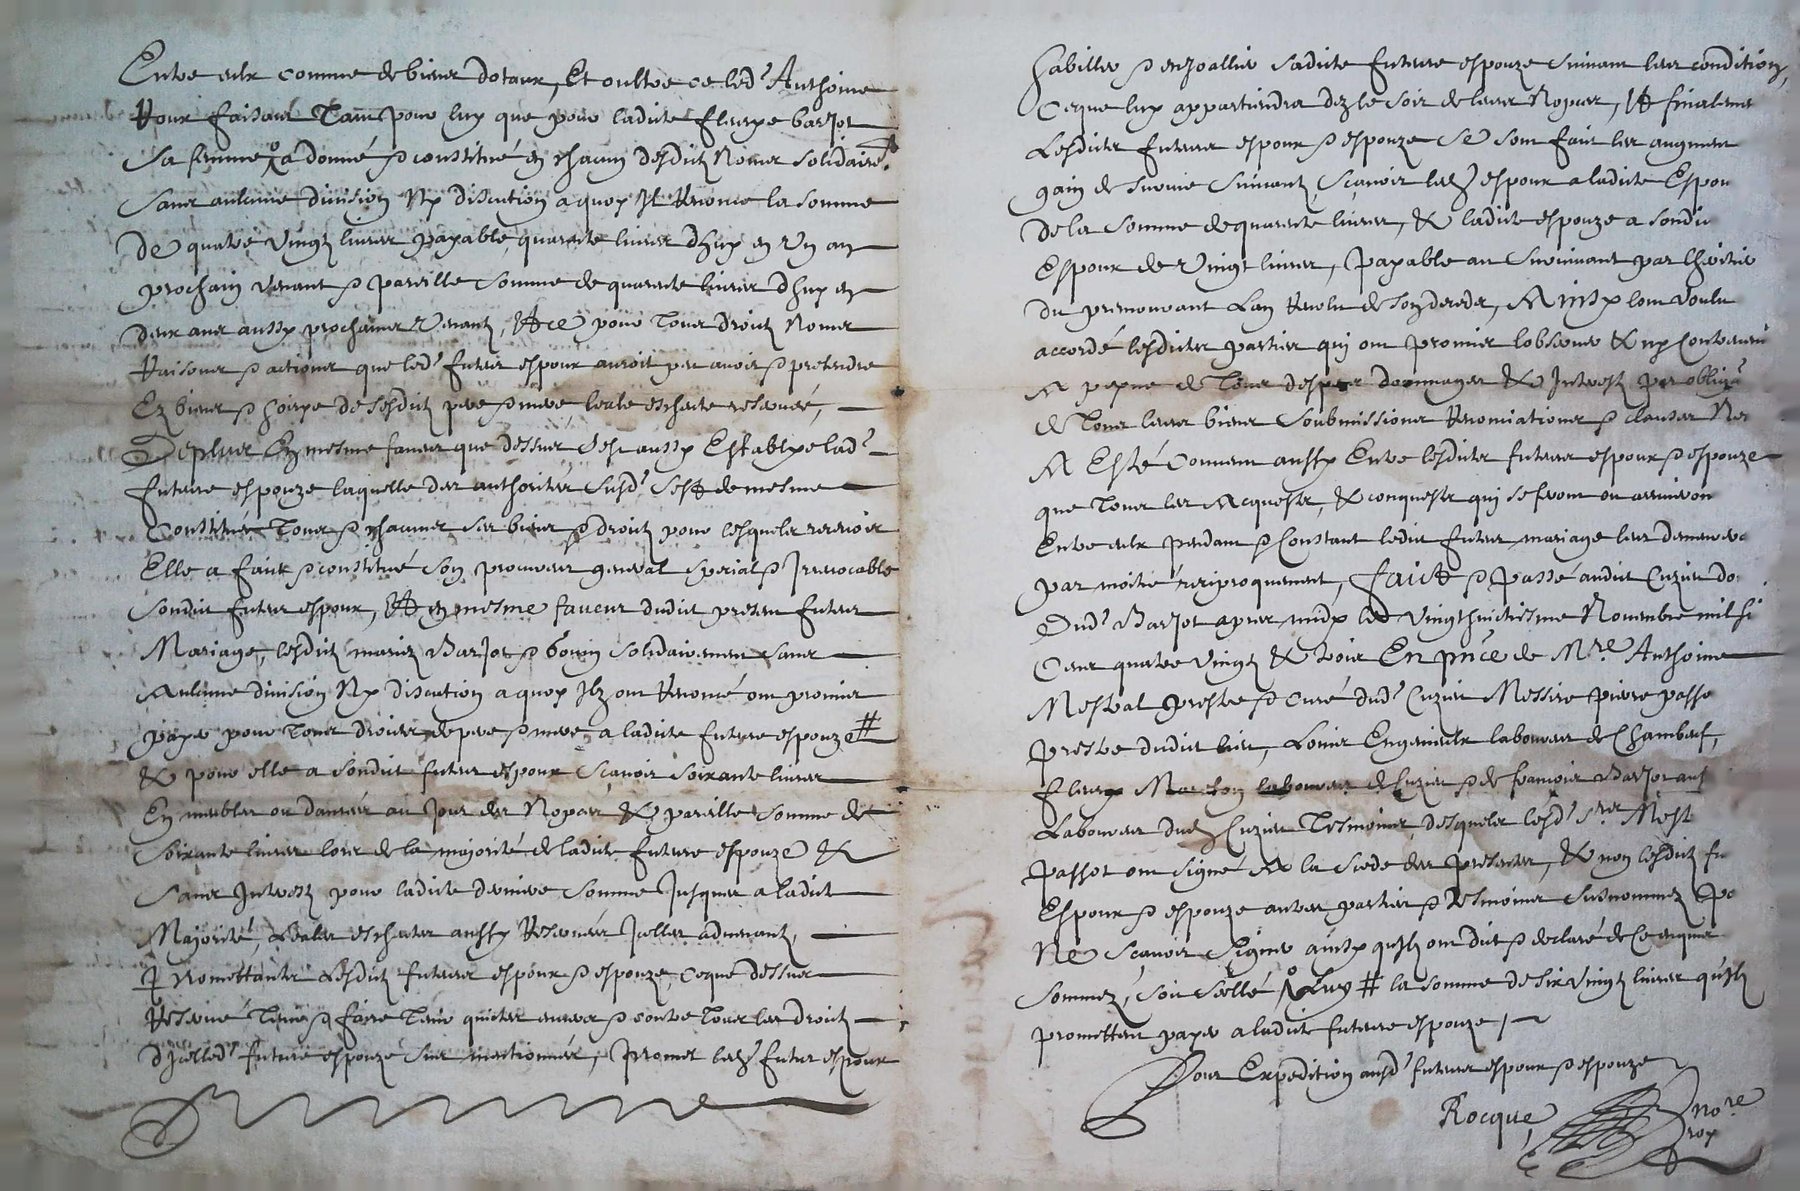 Entre eulx comme de biens dotaux, Et oultre ce led.t Anthoine
Roux faisant tant pour luy que pour ladicte fleurye barjot
sa femme a donné & constitué en chacun desdictz noms solidairemt
sans aulcune division ny discution a quoy Il Renonce la somme
de quatre vingtz livres payable quarante livres dhuy en Un an
prochain venant & pareille somme de quarante livres dhuy en
deux ans aussy prochains venantz, Et ce pour tous droictz noms
Raisons & actions que led.t futur espoux auroit peu avoir & pretendre
Ez biens & hoirye de sesdictz pere & mere leale escheute reservée,
De plus En mesme faveur que dessus sest aussy Establye lad.te
future espouze laquelle des authoritez susd.t sest de mesme
Constitué tous & chacuns ses biens & droictz pour lesquels recevoir
Elle a faict & constitué son procureur general special & Irrevocable
sondict futur espoux, Et en mesme faveur dudict present futur
Mariage, lesdictz mariez Barjot & solidairement sans
Aulcune division Ny discution a quoy Ilz ont Renoncé ont promis
payer pour tous droictz de pere & mere a ladicte future espouze #
& pour elle a sondict futur espoux scavoir soixante livres
En meubles ou danrées au Jour des Nopces & pareille somme de
soixante livres lors de la majorité de ladicte future espouze &
sans Interestz pour ladicte derniere somme Jusques a ladict
Majorité, Leales escheutes aussy Reservées Icelles advenant,
promettantz Lesdictz futurs espoux & espouze ce que dessus
Reservé tenir & faire tenir quictes envers & contre tous les droictz
dIcelled.t future espouze sus mentionnés, Promet led.t futur espoux
habiller & enjoallier sadicte future espouze suivant leur condition,
Ce que luy appartiendra dez le soir de leurs Nopces, Et finalement
Lesdictes futurs espoux & espouze se sont faict les augment
gain de survie suivantz scavoir led.t espoux a ladicte Espou
de la somme de quarante livres, & ladicte espouze a sondic
Espoux de Vingt livres, payable au survivant par lheritier
du premourant Lan Revolu de son deceds, Ainsy lont Voulu
accordé lesdictes parties qui ont promis lobserver & ny Contrevenir
A peyne de tous despens dommages & Interestz par obliga
de tous leurs biens soubmissions Renonciations & clauses Ne
A Esté Convenu aussy Entre lesdictes futurs espoux & espouze
que tous les Acquestz, & conquestz qui se feront ou arriveron
Entre eulx pendant & Constant ledict futur mariage leur demeurero
par moitié reciproquement, faict & passé audict Cuzieu do
Dud.t Barjot apres midy le Vingthuictiesme Novembre mil si
Cens quatre vingtz & trois En pnce de Mre Anthoine
Mestral prestre & curé dud.t Cuzieu Messire pierre passo
prestre dudict lieu, Louis laboureur de Chambeuf,
fleury laboureur de Cuzieu & de francois Barjot aus
Laboureur dud.t Cuzieu tesmoins desquels lesd.t srs Mest
passot ont signé A la Scede des presentes, & non lesdictz fu
Espoux & espouze autres parties & tesmoins susnommez po
Ne scavoir signer ainsy quIlz ont dict & declaré de Ce enquis
sommez, soit scellé luy # la somme de six vingtz livres quIlz
promettent payer a ladicte future espouze
Pour Expedition ausd.t futurs espoux & espouze
Rocque, nore
roy